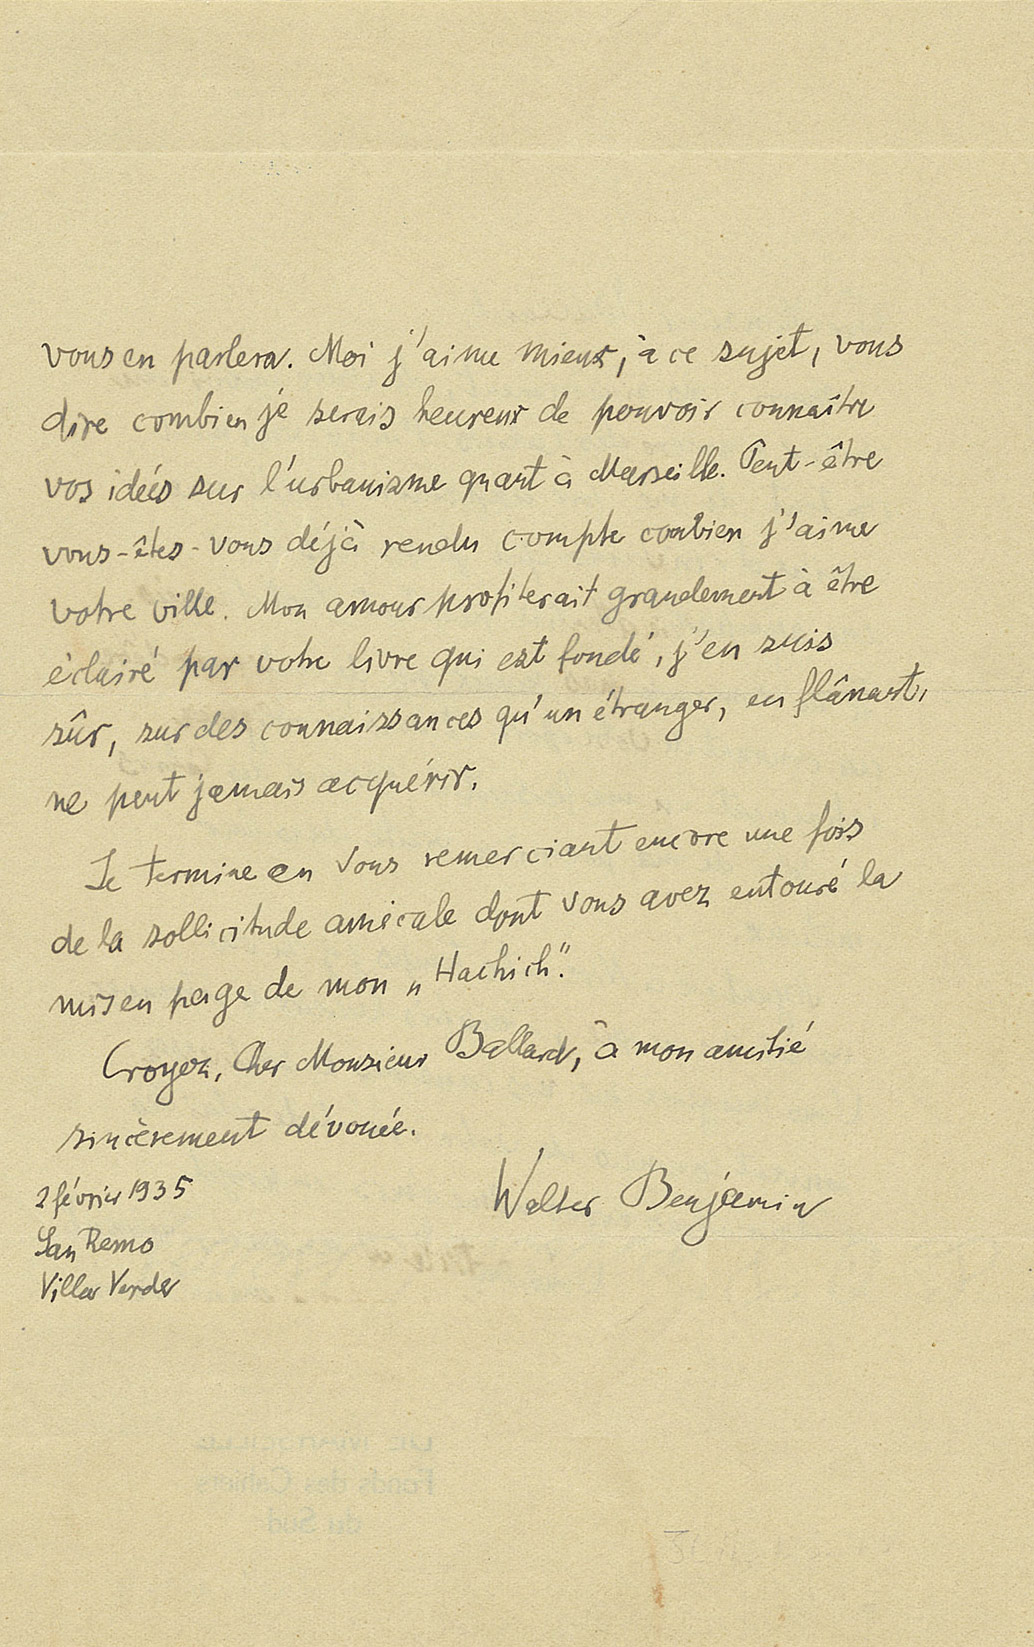 vous en parlera. Moi j'aime mieux, à ce sujet, vous
dire combien je serais heureux de pouvoir connaître
vos idées sur l'urbanisme quant à Marseille. Peut-être
vous-êtes-vous déjà rendu compte combien j'aime
votre ville. Mon amour profiterait grandement à être
éclairé par votre livre qui est fondé, j'en suis
sûr, sur des connaissances qu'un étranger, en flânant,
ne peut jamais acquérir.
Je termine en vous remerciant encore une fois
de la sollicitude amicale dont vous avez entouré la
mis en page de mon „Hachich".
Croyez, Cher Monsieur Ballard, à mon amitié
sincèrement dévouée.
2 février 1935
San Remo
Villa Verde
Walter Benjamin
Fonds des Cahiers
du Sud